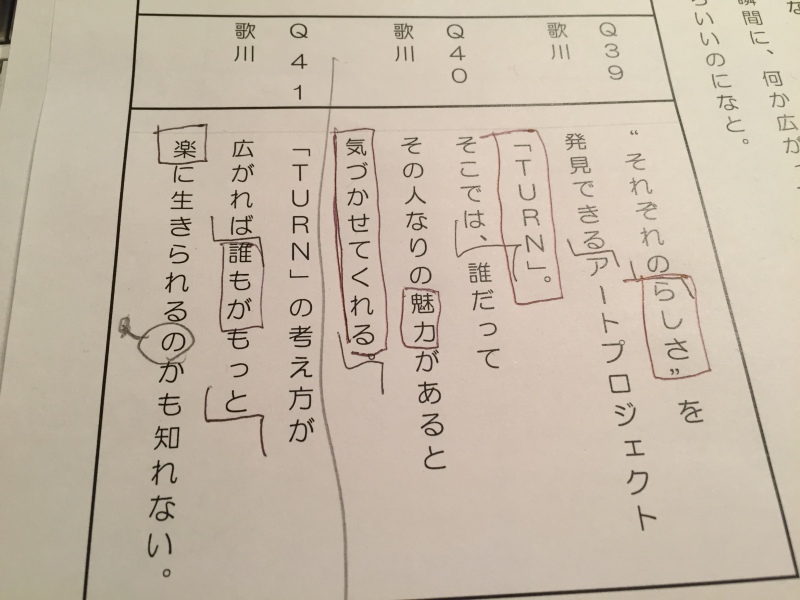 瞬間に、何か広が
らいいのになと。
Q39
歌川
“それぞれのらしさ”を
発見できるアートプロジェクト
「TURN」。
Q40
歌川
そこでは、誰だって
その人なりの魅力があると
気づかせてくれる。
Q41
歌川
「TURN」の考え方が
広がれば誰もがもっと
楽に生きられるのかも知れない。